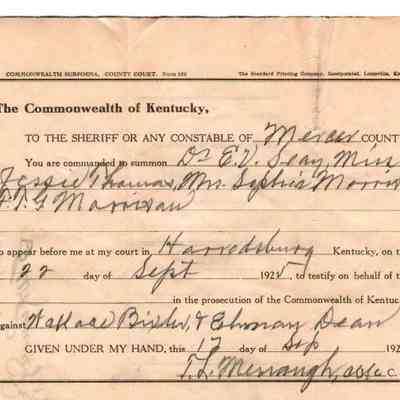 COMMONWEALTH SUBPOENA, COUNTY COURT. Form
The Standard Printing Company, Incorporated, Louisville,
The Commonwealth of Kentucky,
TO THE SHERIFF OR ANY CONSTABLE OF Mercer COUNTY
You are commanded to summon Dr E.V. Seay, Miss
Jessie Thomas, Mrs. Sophia
appear before me at my court in Harrodsburg Kentucky, on the
22 day of Sept 1925, to testify on behalf of the
in the prosecution of the Commonwealth of Kentuc
against Wallace & Dean
GIVEN UNDER MY HAND, this 17 day of Sep 192
T.L.